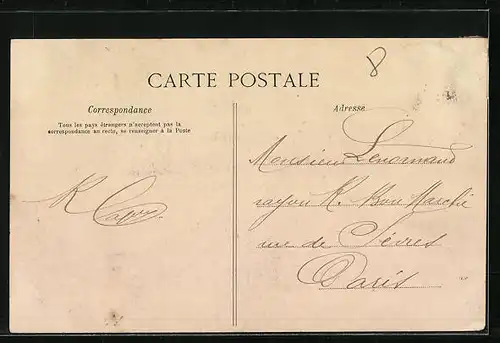 8
CARTE POSTALE
Correspondance
Tous les pays étrangers n'acceptent pas la
correspondance au recto, se renseigner à la Poste
Adresse
R
Monsieur Lenormand
rayon R. Bon Marché
rue de Sèvres
Paris